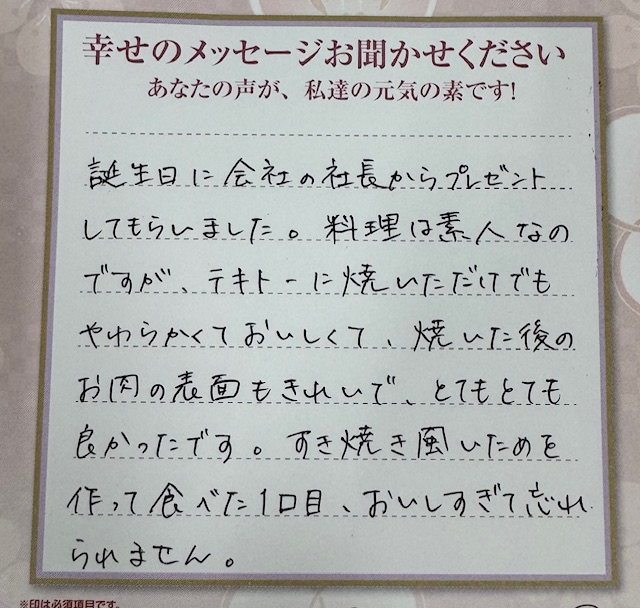 幸せのメッセージお聞かせください
あなたの声が、私達の元気の素です!
誕生日に会社の社長からプレゼント
してもらいました。料理は素人なの
ですが、テキトーに焼いただけでも
やわらかくておいしくて、焼いた後の
お肉の表面もきれいで、とてもとても
良かったです。すき焼き風いためを
作って食べた1口目、おいしすぎて忘れ
られません。
※印は必須項目です。